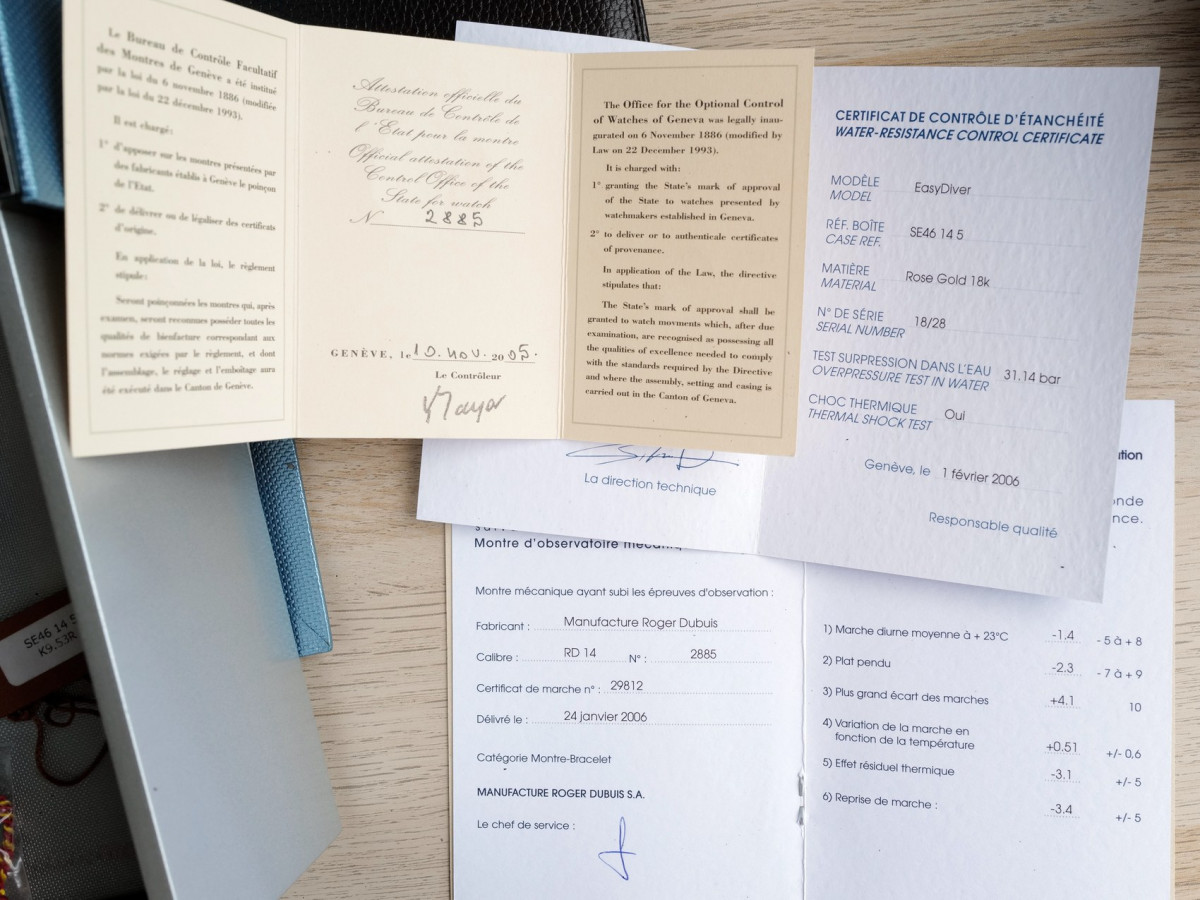 Le Bureau de Contrôle Facultatif
des Montres de Genève a été institué
par la loi du 6 novembre 1886 (modifiée
par la loi du 22 décembre 1993).
Il est chargé:
1° d'apposer sur les montres présentées par
des fabricants établis à Genève le poinçon
de l'Etat.
2° de délivrer ou de légaliser des certificats
d'origine.
En application de la loi, le règlement
stipule:
Seront poinçonnées les montres qui, après
examen, seront reconnues posséder toutes les
qualités de bienfacture correspondant aux
normes exigées par le règlement, et dont
l'assemblage, le réglage et l'emboîtage aura
été exécuté dans le Canton de Genève.
Attestation officielle du
Bureau de Contrôle de
l'Etat pour la montre
Official attestation of the
Control Office of the
State for watch
N 2885
GENÈVE, le 10. nov. 2005.
Le Contrôleur
The Office for the Optional Control
of Watches of Geneva was legally inau-
gurated on 6 November 1886 (modified by
Law on 22 December 1993).
It is charged with:
1° granting the State's mark of approval
of the State to watches presented by
watchmakers established in Geneva.
2° to deliver or to authenticate certificates
of provenance.
In application of the Law, the directive
stipulates that:
The State's mark of approval shall be
granted to watch movments which, after due
examination, are recognised as possessing all
the qualities of excellence needed to comply
with the standards required by the Directive
and where the assembly, setting and casing is
carried out in the Canton of Geneva.
CERTIFICAT DE CONTRÔLE D'ÉTANCHÉITÉ
WATER-RESISTANCE CONTROL CERTIFICATE
MODÈLE EasyDiver
MODEL
RÉF. BOÎTE SE46 14 5
CASE REF.
MATIÈRE Rose Gold 18k
MATERIAL
N° DE SÉRIE 18/28
SERIAL NUMBER
TEST SURPRESSION DANS L'EAU 31.14 bar
OVERPRESSURE TEST IN WATER
CHOC THERMIQUE Oui
THERMAL SHOCK TEST
Genève, le 1 février 2006
Responsable qualité
La direction technique
Montre d'observatoire
Montre mécanique ayant subi les épreuves d'observation :
Fabricant : Manufacture Roger Dubuis
Calibre : RD 14 N° : 2885
Certificat de marche n° : 29812
Délivré le : 24 janvier 2006
Catégorie Montre-Bracelet
MANUFACTURE ROGER DUBUIS S.A.
Le chef de service :
1) Marche diurne moyenne à + 23°C -1.4 - 5 à + 8
2) Plat pendu -2.3 - 7 à + 9
3) Plus grand écart des marches +4.1 10
4) Variation de la marche en
fonction de la température +0.51 +/- 0,6
5) Effet résiduel thermique -3.1 +/- 5
6) Reprise de marche : -3.4 +/- 5
SE46 14 5
K9.53R